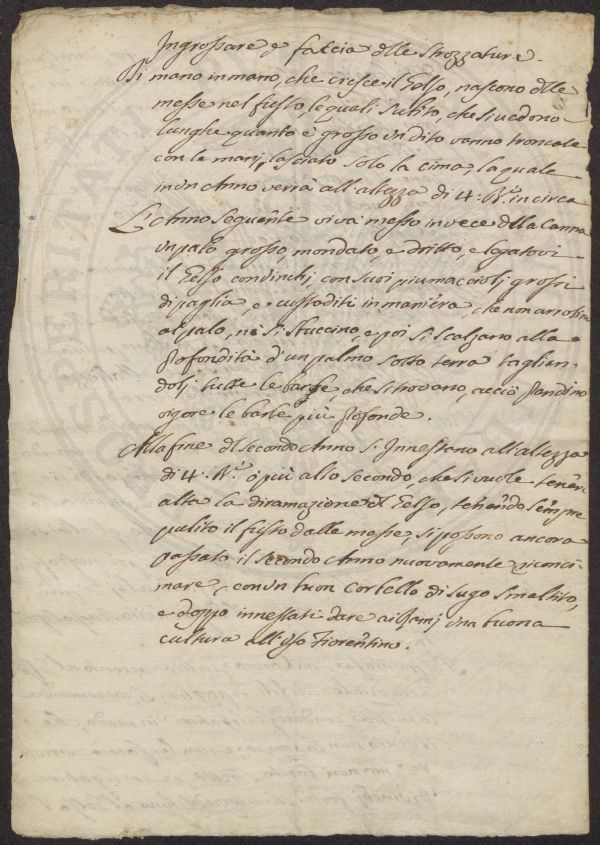 Ingrossare e faccia dlle strozzature.
Di mano in mano, che cresce il Gelso, nascono dlle
messe nel fusto, le quali subito, che si vedono
lunghe quanto è grosso un dito vanno troncate
con le mani, lasciato solo la cima, la quale
in un Anno verrà all'altezza di 4. Bra. in circa
L'Anno seguente viva messo in vece dlla Canna
un palo grosso, mondato, e dritto, e legatovi
il Gelso con vinchi, con suoi piumaccioli grossi
di paglia, e custoditi in maniera, che non arrotino
al palo, nè si stuccino, e poi si scalzano alla
profondità d'un palmo sotto terra taglien-
doli tutte le barbe, che si trovano, acciò prendino
vigore le barbe più profonde.
Alla fine dl secondo Anno s'Innestano all'altezza
di 4. Bra. ò più allo secondo, che si vuole tenere
alta la diramazione dl Gelso, tenendo sempre
pulito il fusto dalle messe, si possono ancora
passato il secondo Anno nuovamente riconci-
mare, con un buon Cortello di Sugo smaltito,
e doppo innestati dare ai Rami una buona
cultura all'uso Fiorentino.